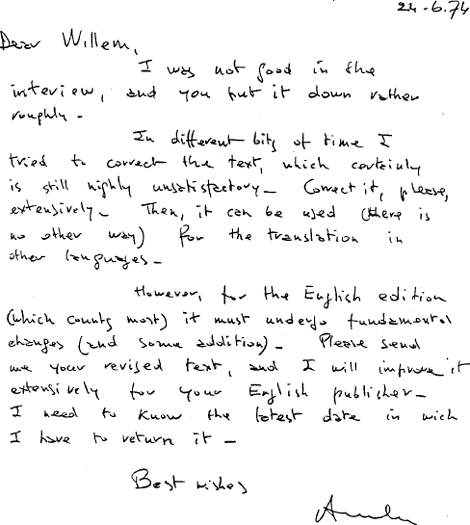 24-6.74
Dear Willem,
I was not good in the
interview, and you put it down rather
roughly -
In different bits of time I
tried to correct the text, which certainly
is still highly unsatisfactory - Correct it, please,
extensively - Then, it can be used (there is
no other way) for the translation in
other languages -
However, for the English edition
(which counts most) it must undergo fundamental
changes (and some addition) - Please send
me your revised text, and I will improve it
extensively for your English publisher -
I need to know the latest date in wich
I have to return it -
Best wishes